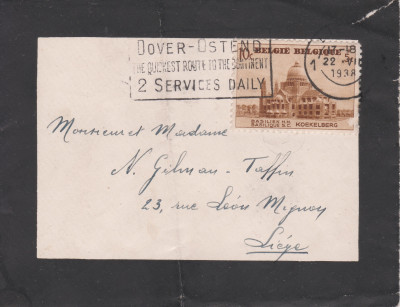 DOVER-OSTEND
THE QUICKEST ROUTE TO THE CONTINENT
2 SERVICES DAILY
1
17-18
22 VII
1938
10c
BELGIE BELGIQUE
BASILIEK H.H.
BASILIQUE S.C. KOEKELBERG
Monsieur et Madame
N. Gilman-Taffin
23, rue Léon Mignon
Liége